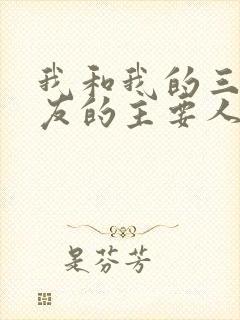 我和我的三
友的主要人
是芬芳